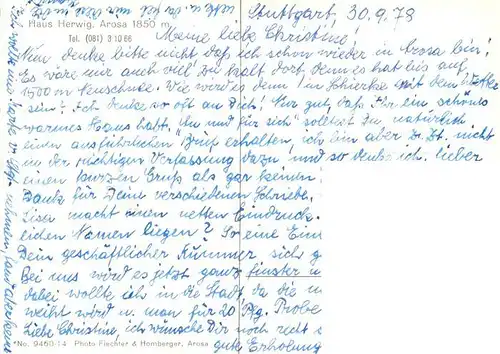 Haus Herwig, Arosa 1850 m
Tel. (081) 3 10 66
Stuttgart, 30.9.78
Meine liebe Christine!
Nun denke bitte nicht daß ich schon wieder in Arosa bin!
Es wäre mir auch viel zu kalt dort, denn es hat bis auf
1500 m Neuschnee. Wie wird es denn in Schierke mit dem Wetter
sein? Ich denke so oft an Dich! Nur gut, daß Ihr ein schönes
warmes Haus habt. "An und für sich" solltest Du natürlich
einen ausführlichen Brief erhalten, ich bin aber z. Zt. nicht
in der richtigen Verfassung dazu und so denke ich, lieber
einen kurzen Gruß als gar keinen.
Danke für Deine verschiedenen Schriebe.
macht einen netten Eindruck.
beiden Namen liegen? So eine Ein
Dein geschäftlicher Kummer sich g
Bei uns wird es jetzt ganz finster u
dabei wollte ich in die Stadt, da die u
weiht wird u. man für 20 Pfg. Probe
Liebe Christine, ich wünsche Dir noch recht
gute Erholung
*No. 9460-14 Photo Flechter & Homberger, Arosa